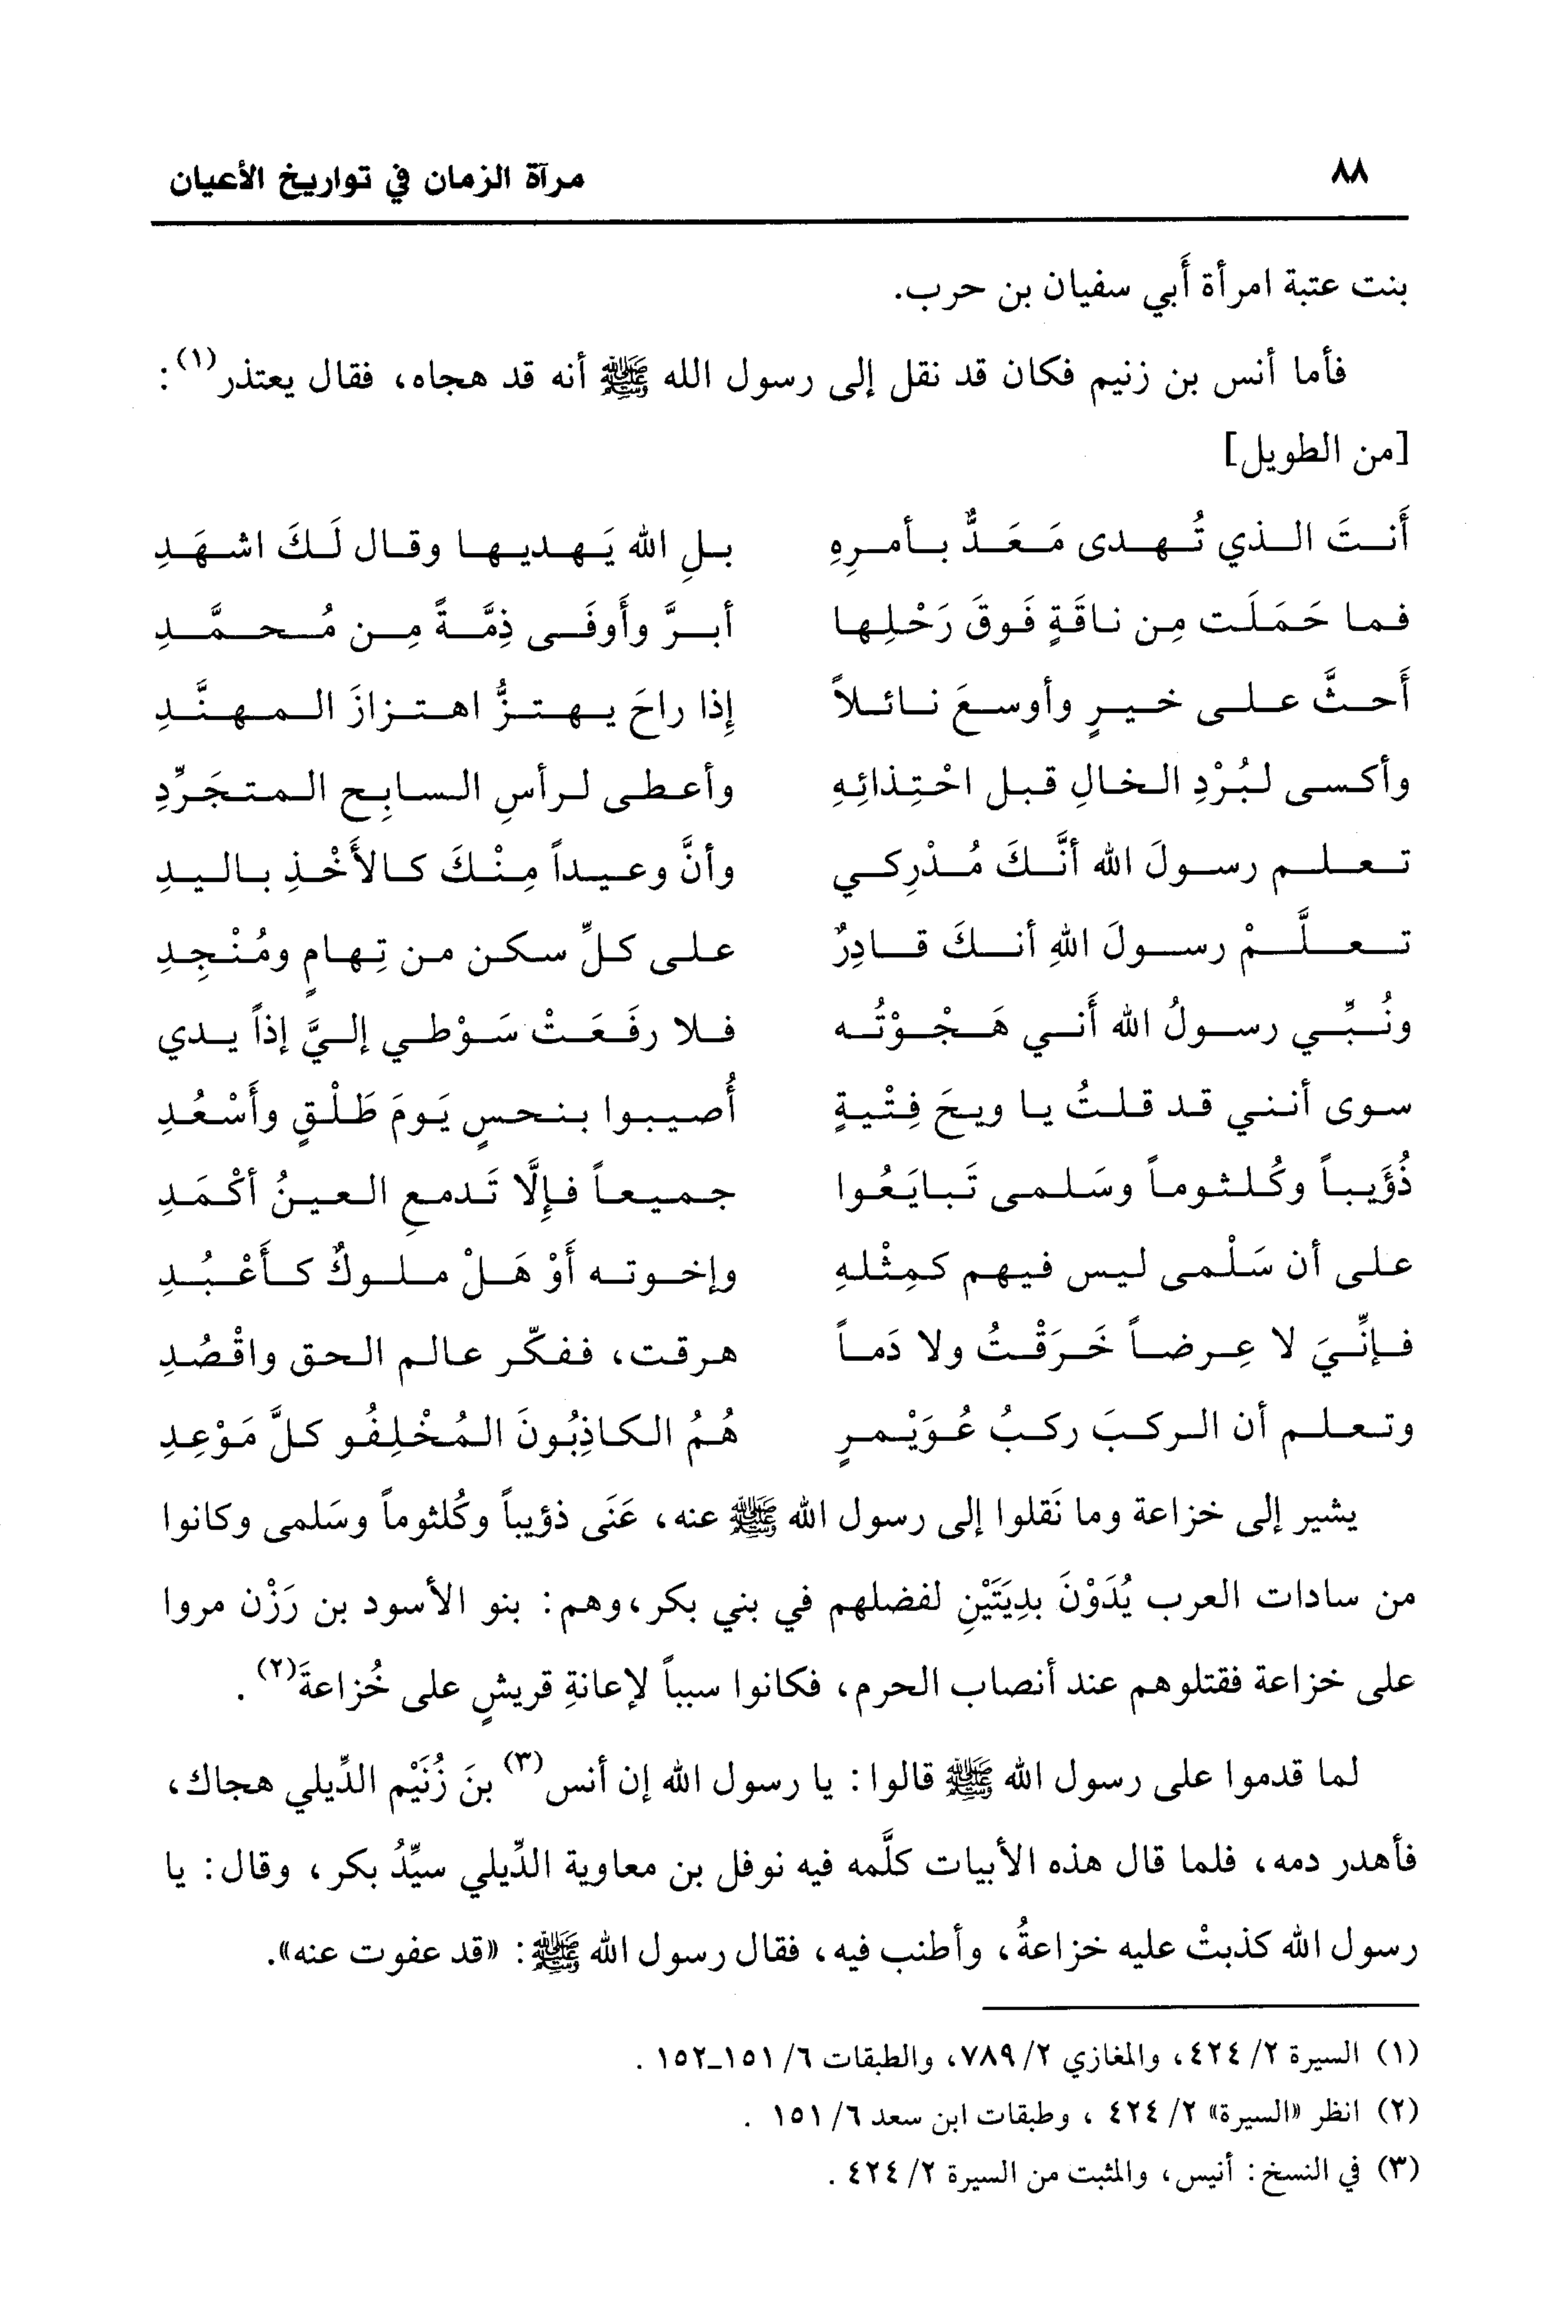 ٨٨ مرآة الزمان في تواريخ الأعيان
بنت عتبة امرأة أَبي سفيان بن حرب.
فأما أنس بن زنيم فكان قد نقل إلى رسول الله ﷺ أنه قد هجاه، فقال يعتذر(١):
[من الطويل]
أَنتَ الذي تُهدى مَعَدٌّ بأمرِهِ بلِ الله يَهديها وقال لَكَ اشهَدِ
فما حَمَلَت مِن ناقَةٍ فَوقَ رَحْلِها أبرَّ وأَوفَى ذِمَّةً مِن مُحمَّدِ
أَحثَّ على خيرٍ وأوسعَ نائلاً إِذا راحَ يهتزُّ اهتزازَ المهنَّدِ
وأكسى لبُرْدِ الخالِ قبل احْتِذائِهِ وأعطى لرأسِ السابِح المتجَرِّدِ
تعلم رسولَ الله أنَّكَ مُدْرِكي وأنَّ وعيداً مِنْكَ كالأَخْذِ باليدِ
تعلَّمْ رسولَ اللهِ أنكَ قادِرٌ على كلِّ سكن من تِهامٍ ومُنْجِدِ
ونُبِّي رسولُ الله أَني هَجْوْتُه فلا رفَعَتْ سَوْطي إليَّ إذاً يدي
سوى أنني قد قلتُ يا ويحَ فِتْيةٍ أُصيبوا بنحسٍ يَومَ طَلْقٍ وأَسْعُدِ
ذُؤَيباً وكُلثوماً وسَلمى تَبايَعُوا جميعاً فإِلَّا تَدمعِ العينُ أكْمَدِ
على أن سَلْمى ليس فيهم كمِثْلهِ وإخوته أَوْ هَلْ ملوكٌ كأَعْبُدِ
فإنِّيَ لا عِرضاً خَرَقْتُ ولا دَماً هرقت، ففكّر عالم الحق واقْصُدِ
وتعلم أن الركبَ ركبُ عُوَيْمرٍ هُمُ الكاذِبُونَ المُخْلِفُو كلَّ مَوْعِدِ
يشير إلى خزاعة وما نَقلوا إلى رسول الله ﷺ عنه، عَنَى ذؤيباً وكُلثوماً وسَلمى وكانوا
من سادات العرب يُدَوْنَ بدِيَتَيْنِ لفضلهم في بني بكر، وهم: بنو الأسود بن رَزْن مروا
على خزاعة فقتلوهم عند أنصاب الحرم، فكانوا سبباً لإعانةِ قريشٍ على خُزاعةَ(٢).
لما قدموا على رسول الله ﷺ قالوا: يا رسول الله إن أنس(٣) بنَ زُنَيْم الدِّيلي هجاك،
فأهدر دمه، فلما قال هذه الأبيات كلَّمه فيه نوفل بن معاوية الدِّيلي سيِّدُ بكر، وقال: يا
رسول الله كذبتْ عليه خزاعةُ، وأطنب فيه، فقال رسول الله ﷺ: «قد عفوت عنه».
(١) السيرة ٢/ ٤٢٤، والمغازي ٢/ ٧٨٩، والطبقات ٦/ ١٥١ـ١٥٢.
(٢) انظر «السيرة» ٢/ ٤٢٤، وطبقات ابن سعد ٦/ ١٥١.
(٣) في النسخ: أنيس، والمثبت من السيرة ٢/ ٤٢٤.